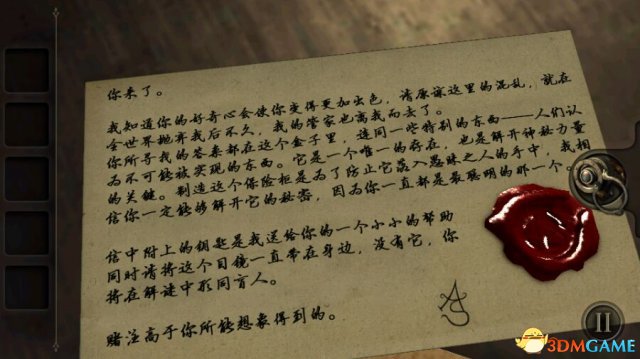 你来了。
我知道你的好奇心会使你变得更加出色，请原谅这里的混乱，就在
全世界抛弃我后不久，我的管家也离我而去了。
你所寻找的答案都在这个盒子里，连同一些特别的东西——人们认
为不可能被实现的东西。它是一个唯一的存在，也是解开神秘力量
的关键。制造这个保险柜是为了防止它落入愚昧之人的手中，我相
信你一定能够解开它的秘密，因为你一直都是最聪明的那一个。
信中附上的钥匙是我送给你的一个小小的帮助
同时请将这个目镜一直带在身边，没有它，你
将在解谜中形同盲人。
赌注高于你所能想象得到的。
AS
3DMGAME